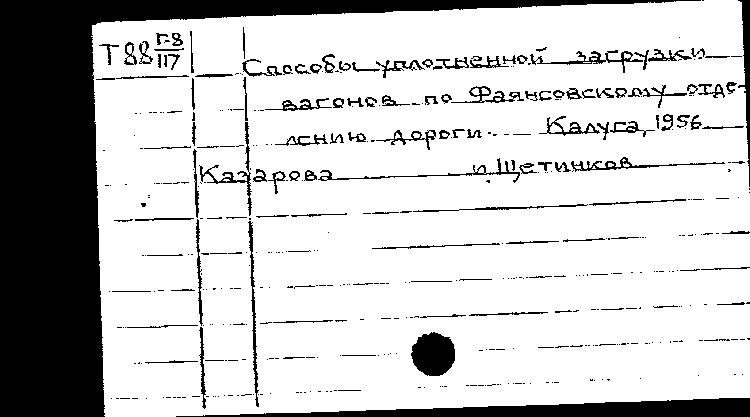 Т88 Г-8/117
Способы уплотненной загрузки
вагонов по Фаянсовскому отде-
лению дороги. Калуга, 1956
Казарова и Щетинков